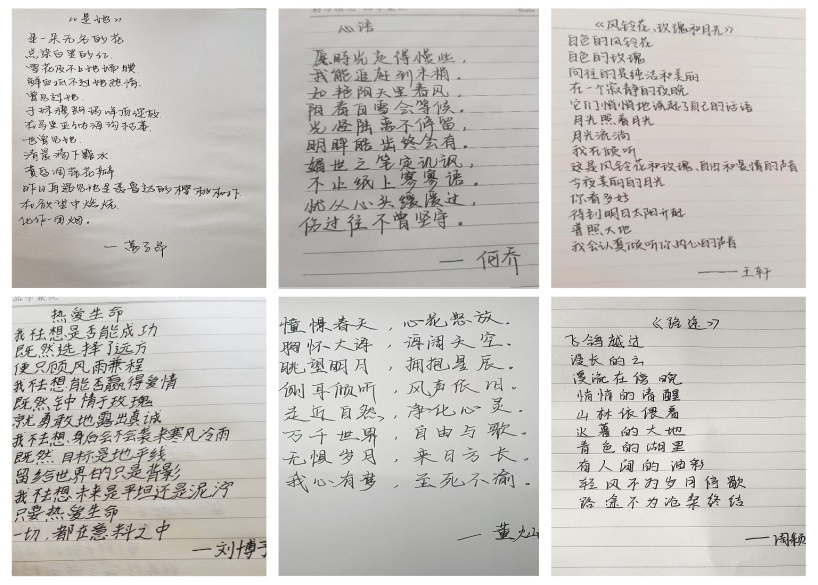 《是她》
是一朵无名的花
点染白里的红
雪花及不上她
曾见过她
于珠穆朗玛峰顶绽放
在马里亚纳海沟枯萎
也曾见她
清晨淌下露水
黄昏凋落花瓣
化作一团烟。
心语
愿时光走得慢些，
我能追赶到末梢。
如艳阳天里春风，
阳春白雪会等候。
光怪陆离不停留，
明眸皓齿终会有。
媚世之笔定讥讽，
不止纸上寥寥语。
忧从心头缓缓过，
伤过往不曾坚守。
— 何乔
《风铃花、玫瑰和月光》
白色的风铃花
白色的玫瑰
同往的是纯洁和美丽
在一个寂静的夜晚
它们悄悄地谈起了自己的话语
月光照着月光
月光流淌
我在倾听
这是风铃花和玫瑰、自由和爱情的声音
今夜美丽的的月光
你看多好
待到明日太阳升起
普照大地
我会认真倾听你内心的声音
——王轩
热爱生命
我不去想是否能成功
既然选择了远方
便只顾风雨兼程
我不去想能否赢得爱情
既然钟情于玫瑰
就勇敢地露出真诚
我不去想身后会不会袭来寒风冷雨
既然目标是地平线
留给世界的只是背影
我不去想未来是平坦还是泥泞
只要热爱生命
一切，都在意料之中
—刘博宇
憧憬春天，心花怒放。
胸怀大海，海阔天空。
眺望明月，拥抱星辰。
侧耳倾听，风声依旧。
走近自然，净化心灵。
万千世界，自由与歌。
无惧岁月，来日方长。
我心有梦，至死不渝。
— 董灿
《路途》
飞鸽越过
漫长的云
漫流在傍晚
悄悄的清醒
山林依偎着
火薯的大地
青色的湖里
有人间的油彩
轻风不为岁月停歇
路途不为沧桑终结
——周颖